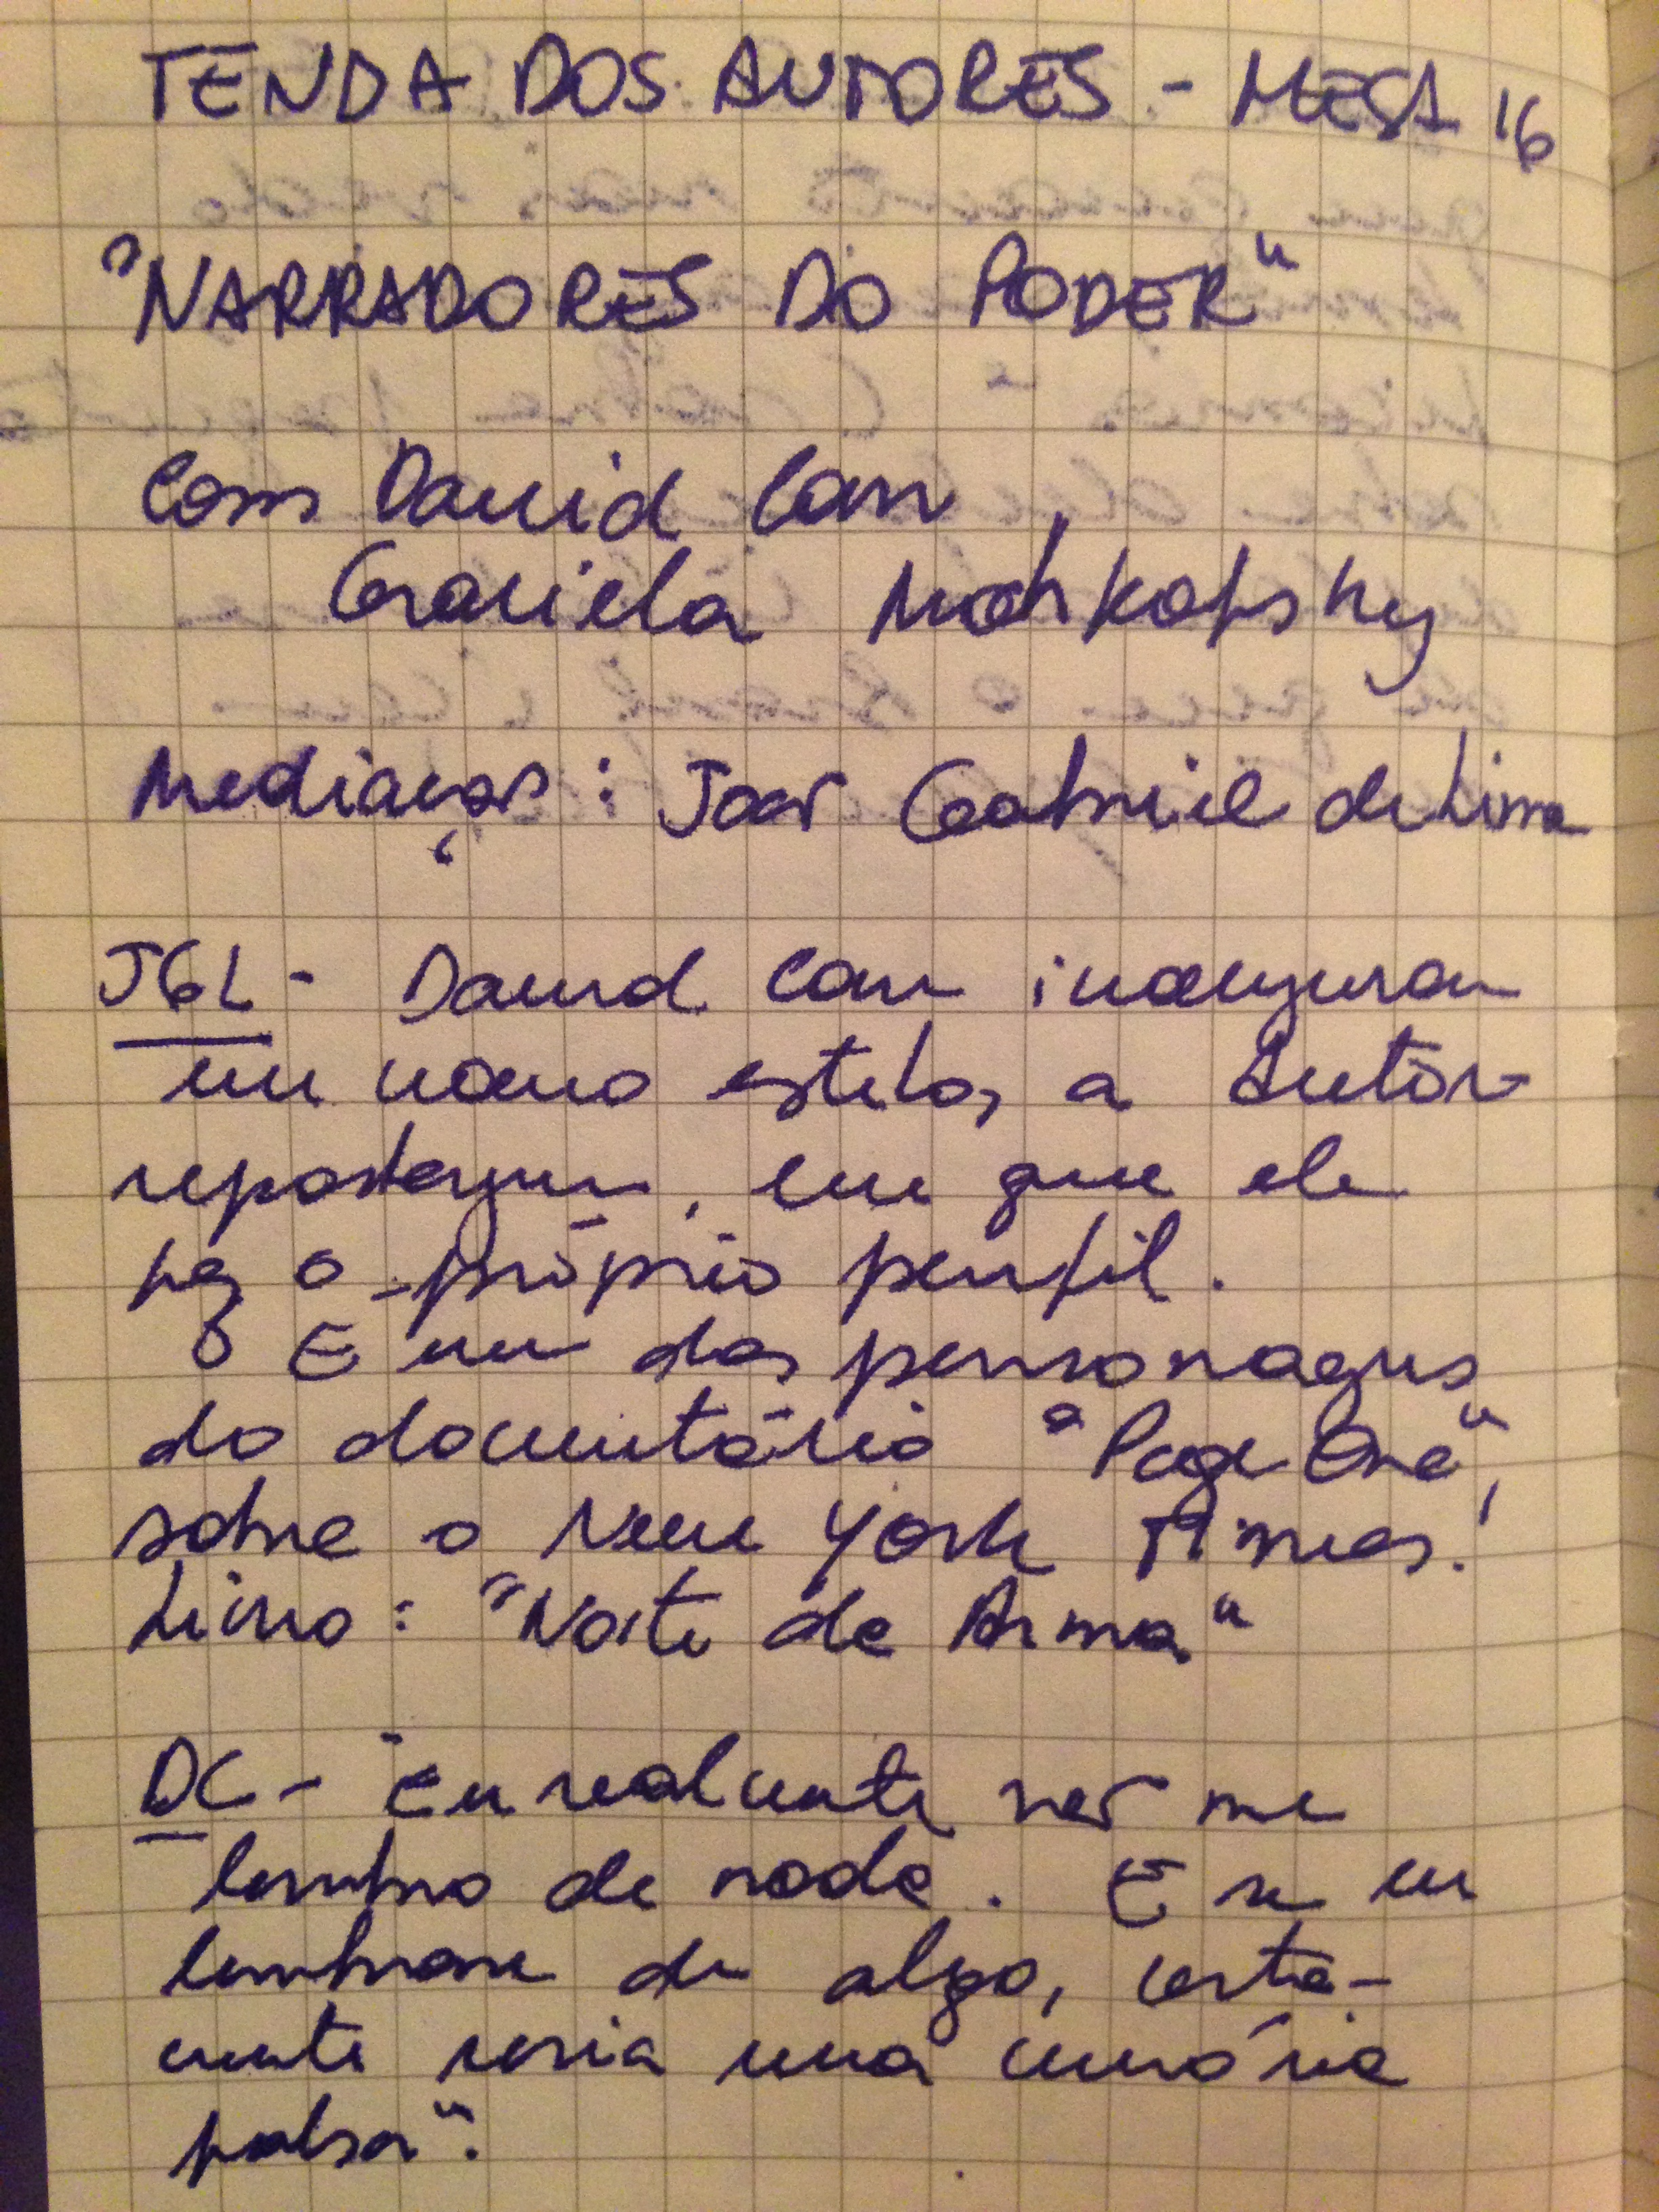 TENDA DOS AUTORES - MESA 16
"NARRADORES DO PODER"
Com David Carr,
Graciela Mochkofsky
Mediação: João Gabriel de Lima
JGL - David Carr inaugurou
um novo estilo, a auto-
reportagem, em que ele
fez o próprio perfil.
É um dos personagens
do documentário "Page One",
sobre o New York Times!
Livro: "Noite da Arma"
DC - "Eu realmente não me
lembro de nada. E se eu
lembrasse de algo, certa-
mente seria uma memória
falsa".